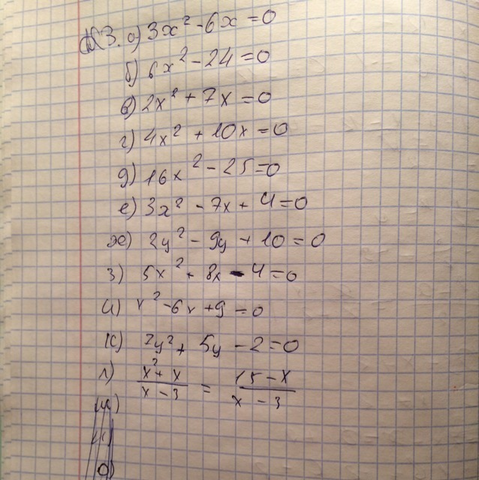 №3. а) 3x² - 6x = 0
б) 6x² - 24 = 0
в) 2x² + 7x = 0
г) 4x² + 10x = 0
д) 16x² - 25 = 0
е) 3x² - 7x + 4 = 0
ж) 2y² - 9y + 10 = 0
з) 5x² + 8x - 4 = 0
и) x² - 6x + 9 = 0
к) 2y² + 5y - 2 = 0
л) (x² + x)/(x - 3) = (15 - x)/(x - 3)